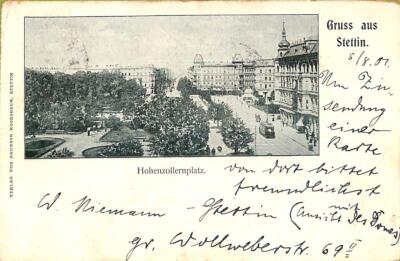 Gruss aus
Stettin.
5/8.01.
Um Zu-
sendung
einer
Karte
von dort bittet
freundlichst
W. Niemann - Stettin (Ansicht des Domes)
mit
gr. Wollweberstr. 69 II
Hohenzollernplatz.
VERLAG VON HEINRICH ROSENBAUM, STETTIN